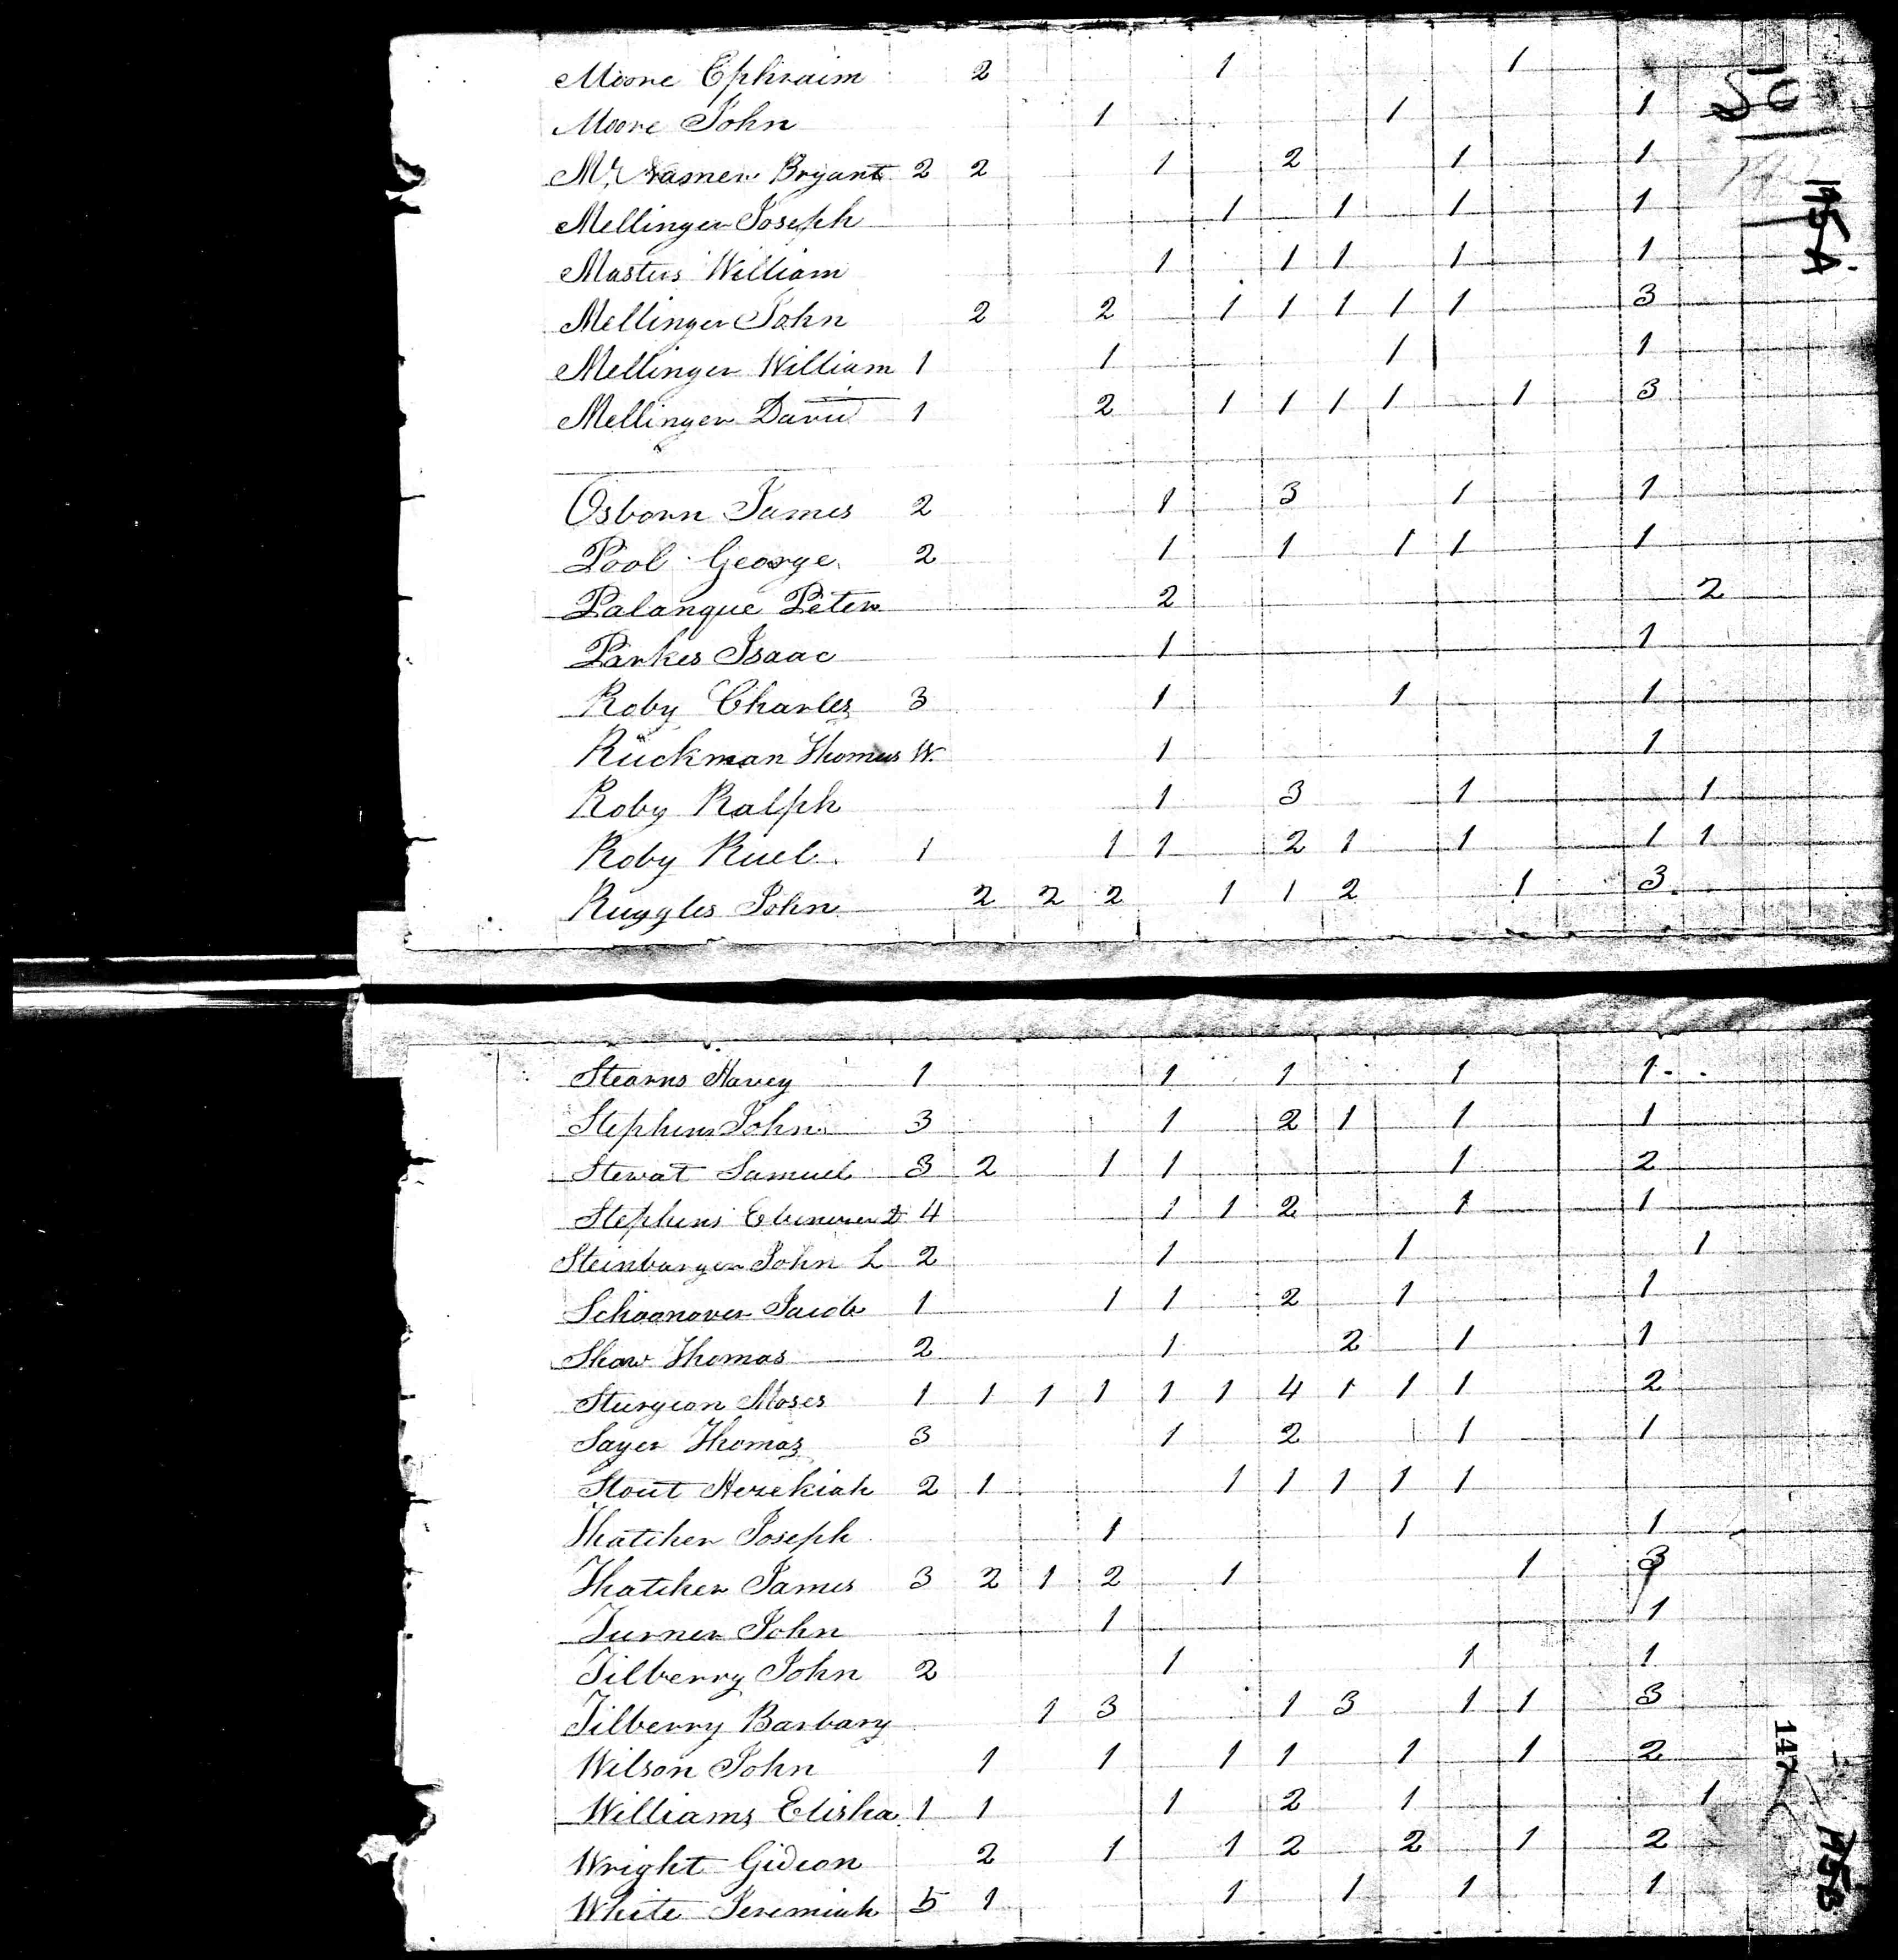 Moore Ephraim 2 1 1
Moore John 1 1 1
Bryant 2 2 1 2 1 1
Mellinger Joseph 1 1 1 1
Masters William 1 1 1 1 1
Mellinger John 2 2 1 1 1 1 1 3
Mellinger William 1 1 1 1
Mellinger David 1 2 1 1 1 1 1 3
Osborn James 2 1 3 1 1
Pool George 2 1 1 1 1 1
Palanque Peter 2 2
Parkes Isaac 1 1
Roby Charles 3 1 1 1
Ruckman Thomas W. 1 1
Roby Ralph 1 3 1 1
Roby Ruel 1 1 1 2 1 1 1 1
Ruggles John 2 2 2 1 1 2 1 3
145A
Stearns Harvey 1 1 1 1 1
Stephens John 3 1 2 1 1 1
Stewat Samuel 3 2 1 1 1 2
Stephens Ebenezer 4 1 1 2 1 1
Steinbarger John L 2 1 1 1
Schoonover Jacob 1 1 1 2 1 1
Shaw Thomas 2 1 2 1 1
Sturgeon Moses 1 1 1 1 1 1 4 1 1 1 2
Sayer Thomas 3 1 2 1 1
Stout Hezekiah 2 1 1 1 1 1 1
Thatcher Joseph 1 1 1
Thatcher James 3 2 1 2 1 1 3
Turner John 1 1
Tilberry John 2 1 1 1
Tilberry Barbary 1 3 1 3 1 1 3
Wilson John 1 1 1 1 1 1 2
Williams Elisha 1 1 1 2 1 1
Wright Gideon 2 1 1 2 2 1 2
White Jeremiah 5 1 1 1 1 1
147
145B